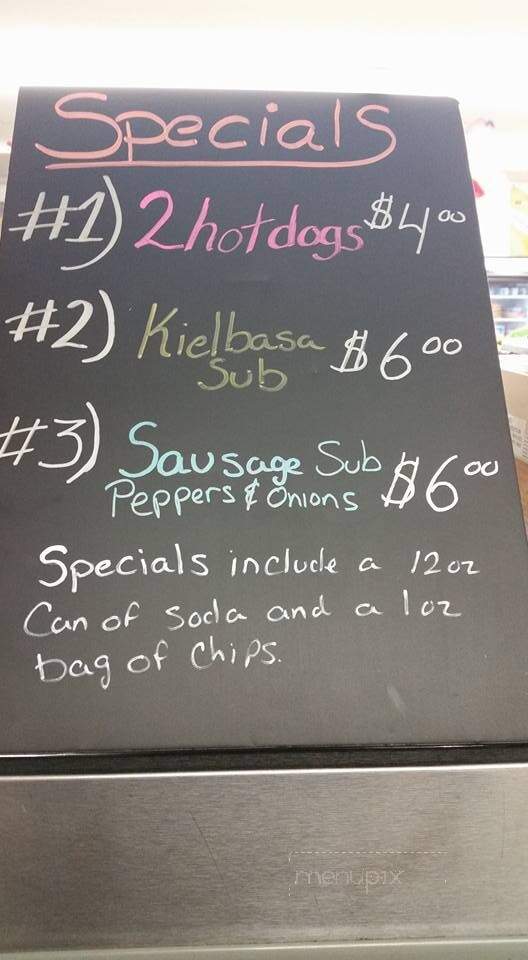 Specials
#1) 2 hot dogs $4.00
#2) Kielbasa $6.00
Sub
#3) Sausage Sub $6.00
Peppers & Onions
Specials include a 12oz
Can of Soda and a 1oz
bag of Chips.
menupix